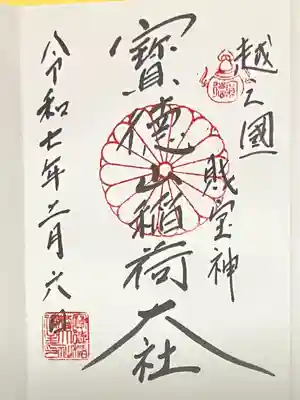 越之國
財宝神
寶徳山稲荷大社
令和七年三月六日